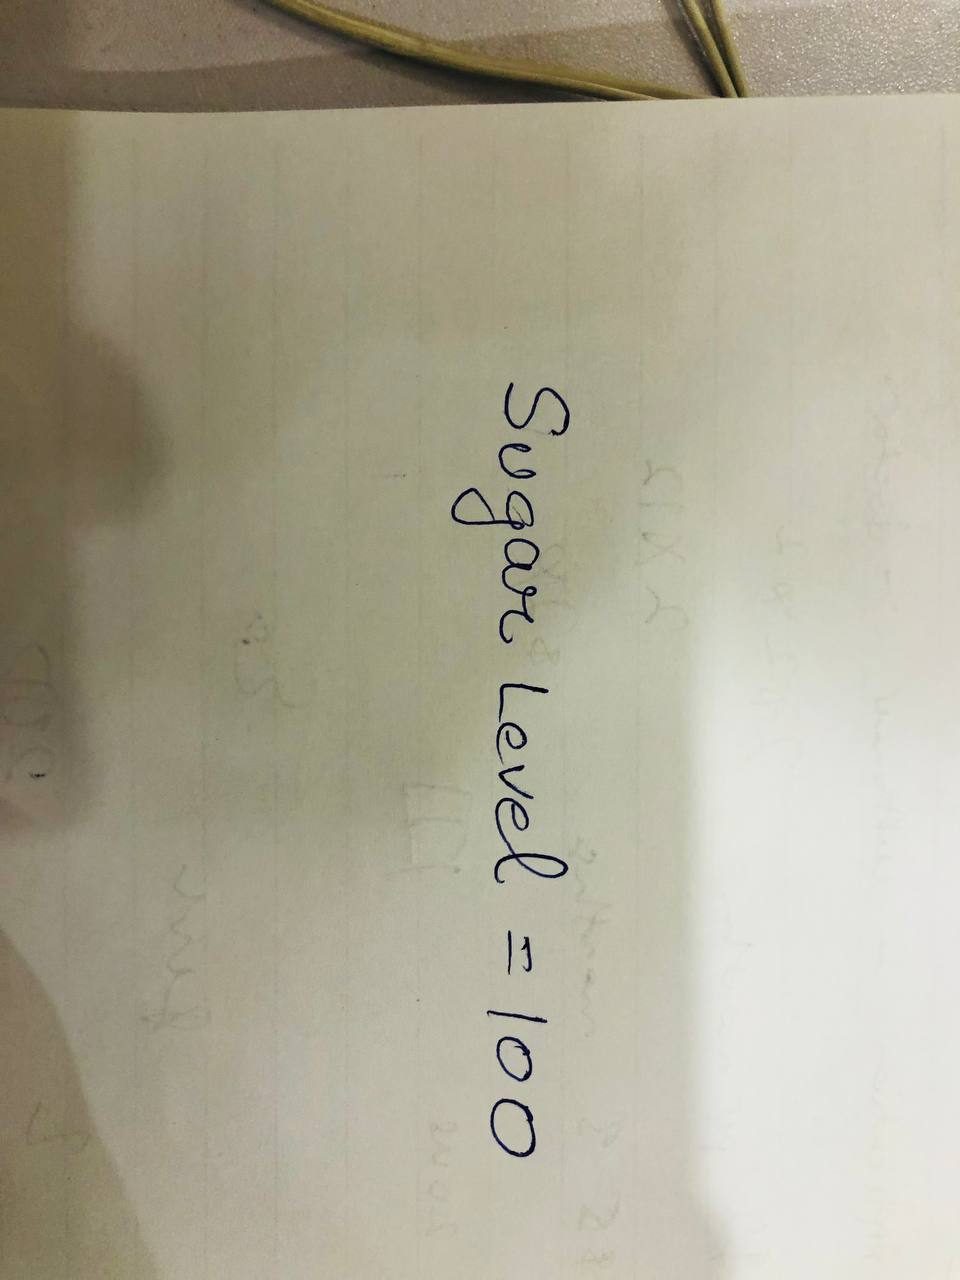 Sugar Level = 100